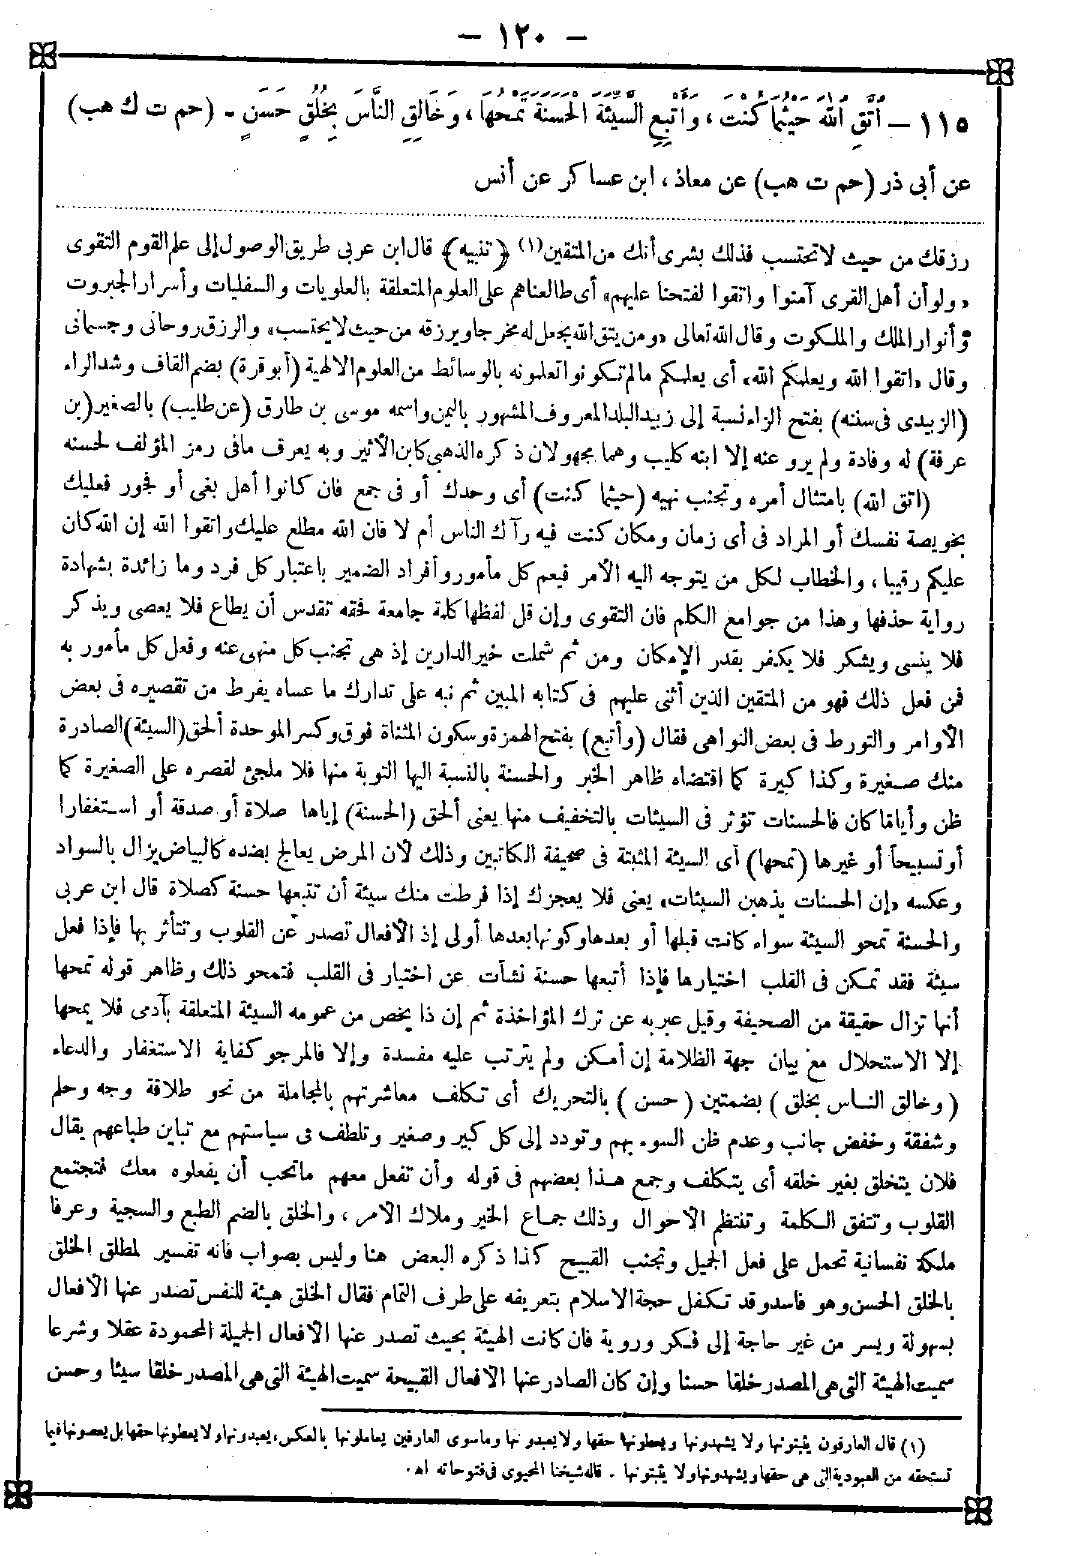 — ١٢٠ —
١١٥ – اتَّقِ اللهَ حَيْثُمَا كُنْتَ ، وَأَتْبِعِ السَّيِّئَةَ الْحَسَنَةَ تَمْحُهَا ، وَخَالِقِ النَّاسَ بِخُلُقٍ حَسَنٍ - (حم ت ك هب)
عن أبى ذر (حم ت هب) عن معاذ ، ابن عساكر عن أنس
رزقك من حيث لا تحتسب فذلك بشرى أنك من المتقين (١) ﴿ تنبيه ﴾ قال ابن عربى طريق الوصول إلى علم القوم التقوى
«ولو أن أهل القرى آمنوا واتقوا لفتحنا عليهم» أى طالعناهم على العلوم المتعلقة بالعلويات والسفليات وأسرار الجبروت
وأنوار الملك والملكوت وقال الله تعالى «ومن يتق الله يجعل له مخرجا ويرزقه من حيث لا يحتسب» والرزق روحانى وجسمانى
وقال «اتقوا الله ويعلمكم الله» أى يعلمكم مالم تكونوا تعلمونه بالوسائط من العلوم الالهية (أبو قرة) بضم القاف وشد الراء
(الزبيدى فى سننه) بفتح الزاء نسبة إلى زبيد البلد المعروف المشهور باليمن واسمه موسى بن طارق (عن طليب) بالصغير (بن
عرفة) له وفادة ولم يرو عنه إلا ابنه كليب وهما مجهولان ذكره الذهبى كابن الأثير وبه يعرف مافى رمز المؤلف لحسنه
(اتق الله) بامتثال أمره وتجنب نهيه (حيثما كنت) أى وحدك أو فى جمع فان كانوا أهل بغى أو فجور فعليك
بخويصة نفسك أو المراد فى أى زمان ومكان كنت فيه رآك الناس أم لا فان الله مطلع عليك واتقوا الله إن الله كان
عليكم رقيبا ، والخطاب لكل من يتوجه اليه الأمر فيعم كل مأمور وأفراد الضمير باعتبار كل فرد وما زائدة بشهادة
رواية حذفها وهذا من جوامع الكلم فان التقوى وإن قل لفظها كلمة جامعة فحقه تقدس أن يطاع فلا يعصى ويذكر
فلا ينسى ويشكر فلا يكفر بقدر الإمكان ومن ثم شملت خير الدارين إذ هى تجنب كل منهى عنه وفعل كل مأمور به
فمن فعل ذلك فهو من المتقين الذين أثنى عليهم فى كتابه المبين ثم نبه على تدارك ما عساه يفرط من تقصيره فى بعض
الأوامر والتورط فى بعض النواهى فقال (وأتبع) بفتح الهمزة وسكون المثناة فوق وكسر الموحدة ألحق (السيئة) الصادرة
منك صغيرة وكذا كبيرة كما اقتضاه ظاهر الخبر والحسنة بالنسبة اليها التوبة منها فلا ملجئ لقصره على الصغيرة كما
ظن وأياما كان فالحسنات تؤثر فى السيئات بالتخفيف منها يعنى ألحق (الحسنة) إياها صلاة أو صدقة أو استغفارا
أو تسبيحا أو غيرها (تمحها) أى السيئة المثبتة فى صحيفة الكاتبين وذلك لأن المرض يعالج بضده كالبياض يزال بالسواد
وعكسه «إن الحسنات يذهبن السيئات» يعنى فلا يعجزك إذا فرطت منك سيئة أن تتبعها حسنة كصلاة قال ابن عربى
والحسنة تمحو السيئة سواء كانت قبلها أو بعدها وكونها بعدها أولى إذ الأفعال تصدر عن القلوب وتتأثر بها فإذا فعل
سيئة فقد تمكن فى القلب اختيارها فإذا أتبعها حسنة نشأت عن اختيار فى القلب فتمحو ذلك وظاهر قوله تمحها
أنها تزال حقيقة من الصحيفة وقيل عبر به عن ترك المؤاخذة ثم إن ذا يخص من عمومه السيئة المتعلقة بآدمى فلا يمحها
إلا الاستحلال مع بيان جهة الظلامة إن أمكن ولم يترتب عليه مفسدة وإلا فالمرجو كفاية الاستغفار والدعاء
(وخالق الناس بخلق) بضمتين (حسن) بالتحريك أى تكلف معاشرتهم بالمجاملة من نحو طلاقة وجه وحلم
وشفقة وخفض جانب وعدم ظن السوء بهم وتودد إلى كل كبير وصغير وتلطف فى سياستهم مع تباين طباعهم يقال
فلان يتخلق بغير خلقه أى يتكلف وجمع هذا بعضهم فى قوله وأن تفعل معهم ماتحب أن يفعلوه معك فتجتمع
القلوب وتتفق الكلمة وتنتظم الأحوال وذلك جماع الخير وملاك الأمر ، والخلق بالضم الطبع والسجية وعرفا
ملكة نفسانية تحمل على فعل الجميل وتجنب القبيح كذا ذكره البعض هنا وليس بصواب فانه تفسير لمطلق الخلق
بالخلق الحسن وهو فاسد وقد تكفل حجة الاسلام بتعريفه على طرف التمام فقال الخلق هيئة للنفس تصدر عنها الأفعال
بسهولة ويسر من غير حاجة إلى فكر وروية فان كانت الهيئة بحيث تصدر عنها الأفعال الجميلة المحمودة عقلا وشرعا
سميت الهيئة التى هى المصدر خلقا حسنا وإن كان الصادر عنها الأفعال القبيحة سميت الهيئة التى هى المصدر خلقا سيئا وحسن
(١) قال العارفون يثبتونها ولا يشهدونها ويعطونها حقها ولا يعبدونها وماسوى العارفين يعاملونها بالعكس ، يعبدونها ولا يعطونها حقها بل يغصونها فيما
تستحقه من العبودية التى هى حقها ويشهدونها ولا يثبتونها . قاله شيخنا المحيوى فى فتوحاته اه .